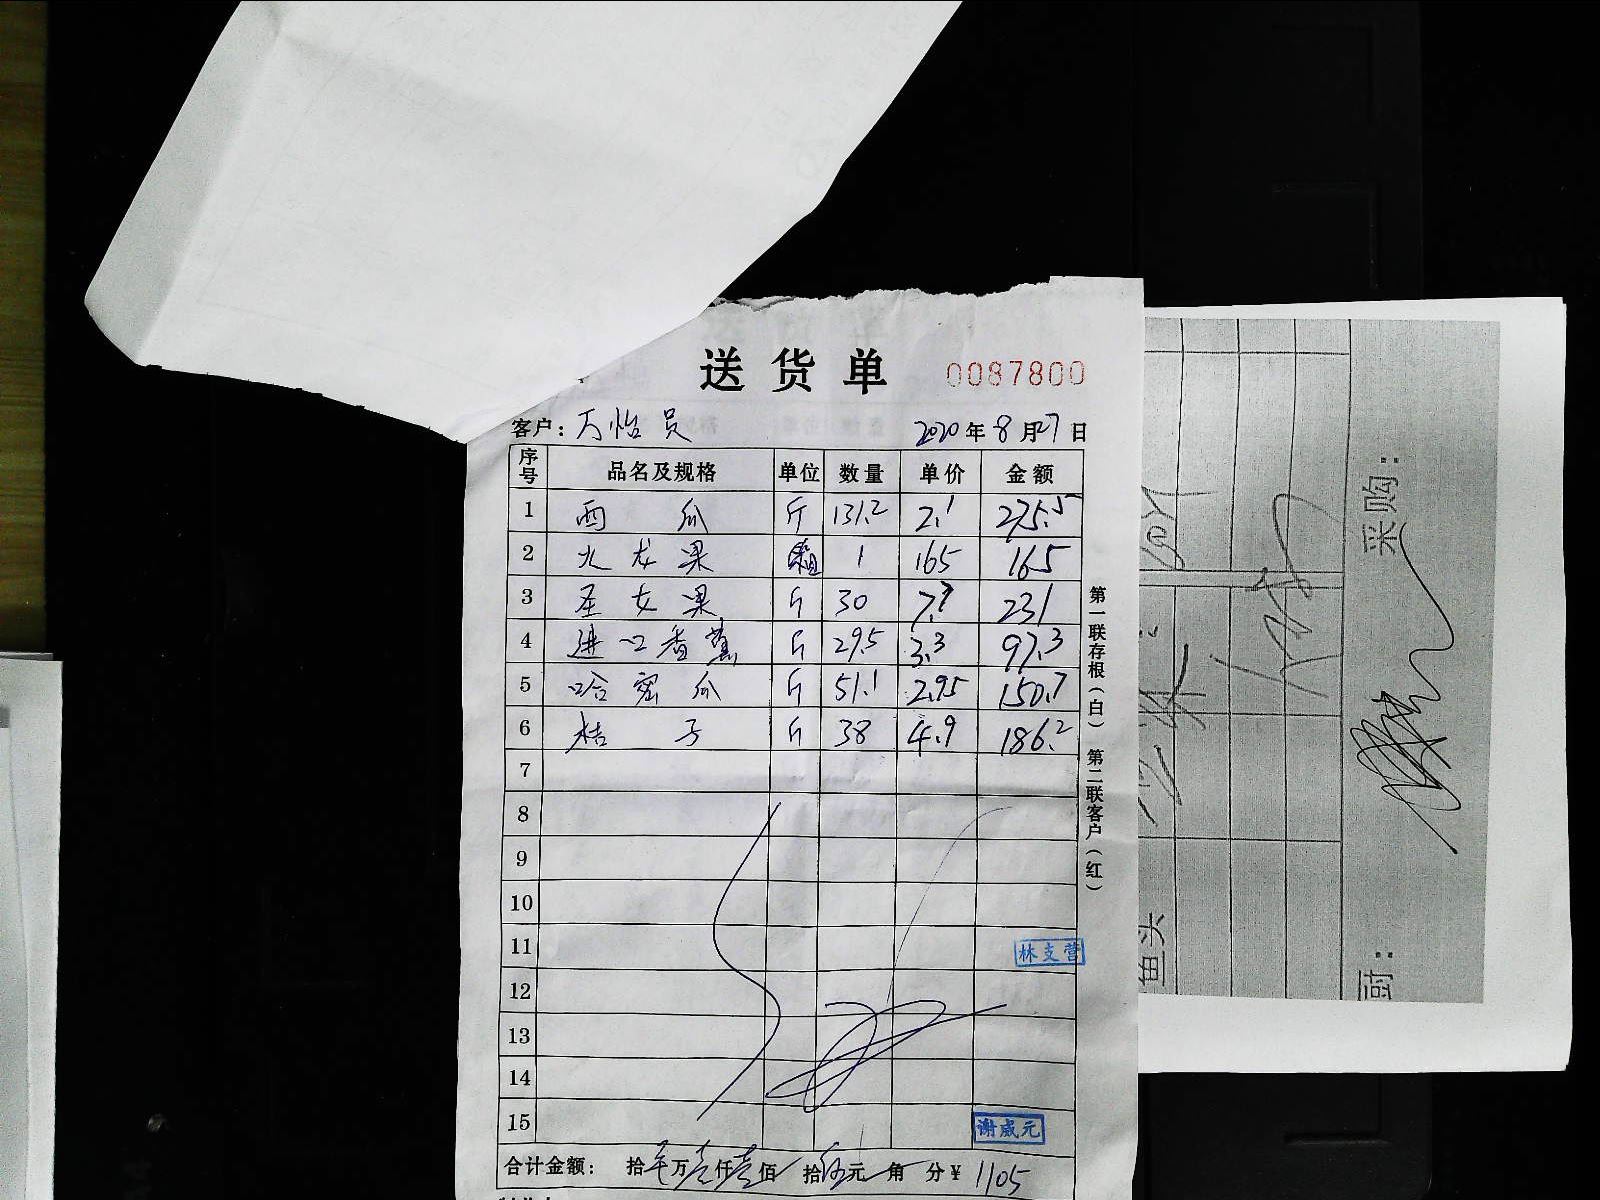 送货单 0087800
客户：万怡员 2020年8月27日
序号 品名及规格 单位 数量 单价 金额
1 西瓜 斤 131.2 2.1 275.5
2 火龙果 1 165 165
3 圣女果 斤 30 7.7 231
4 进口香蕉 斤 29.5 3.3 97.3
5 哈密瓜 斤 51.1 2.95 150.7
6 桔子 斤 38 4.9 186.2
7
8
9
10
11 林支营
12
13
14
15 谢威元
合计金额： 拾 万壹仟壹佰 拾伍元 角 分￥ 1105
第一联存根（白） 第二联客户（红）
采购：
鱼头
厨：